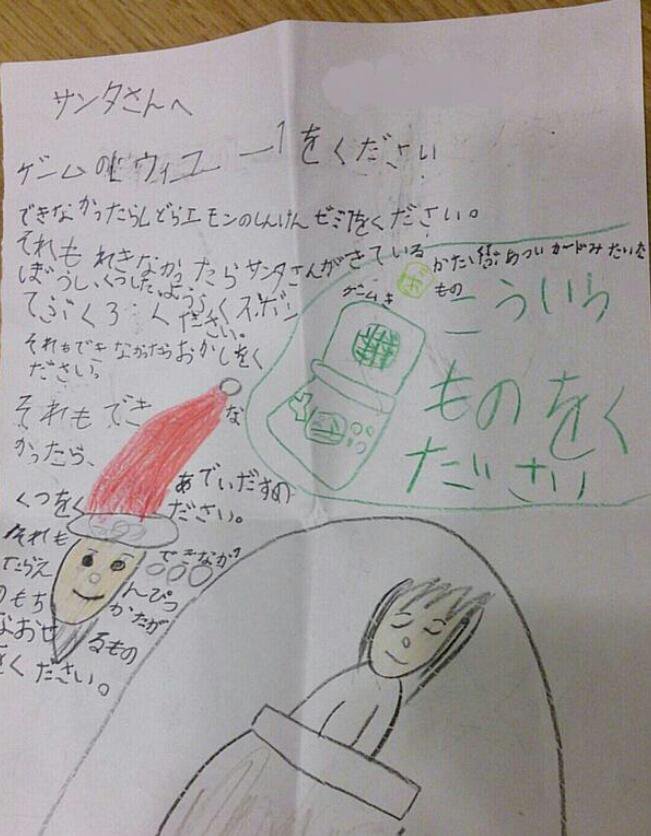 サンタさんへ
ゲームの ウィユーをください
できなかったらどらエモンのしんけんゼミをください。
それもできなかったらサンタさんがきている
ぼうし、くつした、ようふくズボン
てぶくろ ください。
それもできなかったらおかしをく
ださい。
それもできな
かったら、
あでぃだすの
くつをください。
それもできなかっ
たらえんぴつ
のもちかたが
なおせるもの
をください。
かたい あついカードみたいな
もの
ゲームき
こういう
ものをく
ださい